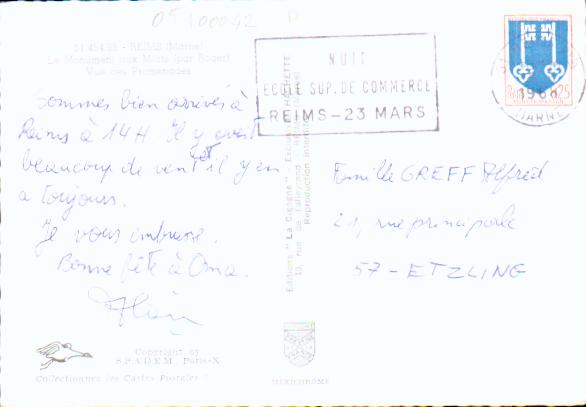 05100042
51.454.85 - REIMS (Marne)
Le Monument aux Morts (par Roger)
Vue des Promenades
Sommes bien arrivés à
Reims à 14H. Il y avait
beaucoup de vent et il y en
a toujours.
Je vous embrasse.
Bonne fête à Oma.
Alain
Copyright by
S.P.A.D.E.M. Paris-X
Collectionnez les Cartes Postales
Editions "La Cigogne"
Reproduction interdite
MEXICHROME
NUIT
ECOLE SUP. DE COMMERCE
REIMS - 23 MARS
1968
MARNE
0,25
Famille GREFF Alfred
21, rue principale
57 - ETZLING